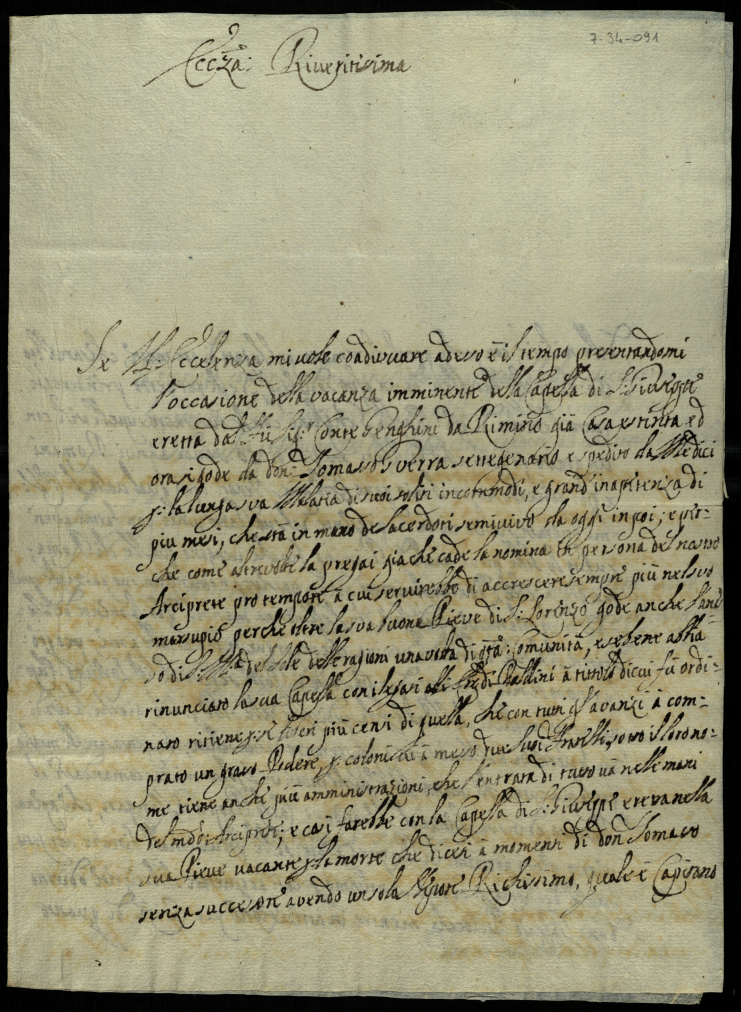 7-34-091
Eccza: Riveritissima
Se V. Eccelenza mi vole coadiuvare adesso è il tempo presentandomi
l'occasione della vacanza imminente della Capella di S. Giuseppe
eretta dal fu Sig.r Conte Benghini da Rimino già Casa estinta ed
ora si gode da don Tomaso Sverra settegenario e spedito da Medici
p. la lunga sua Malatia di suoi soliti incommodi, e grand'inapetenza di
più mesi, che stà in mano de Sacerdoti semivivo da oggi in poi; e per-
che come altrevolte la pregai già che cade la nomina in persona del nostro
Arciprete pro tempore à cui servirebbe di accrescere sempre più nel suo
marsupio perche oltre la sua buona Pieve di S. Lorenzo gode anche
so di delle ragioni una volta di Comunità, e se bene abbia
rinunciato la sua Capella con i legati Ballini à titolo di cui fù ordi-
nato ritiene altri più censi di quella, che con tutti gl'avanzi à com-
prato un grasso Podere, p. coloni à mezo due suoi Fratelli, sotto il loro no-
me tiene anche più amministrazioni, che l'entrata di tutto và nelle mani
del Arciprete; e cosi farebbe con la Capella di S. Giuseppe eretta nella
sua Pieve vacante p. la morte che dicesi à momenti di don Tomaso
senza successore avendo un sola Richissimo, quale è Capitano